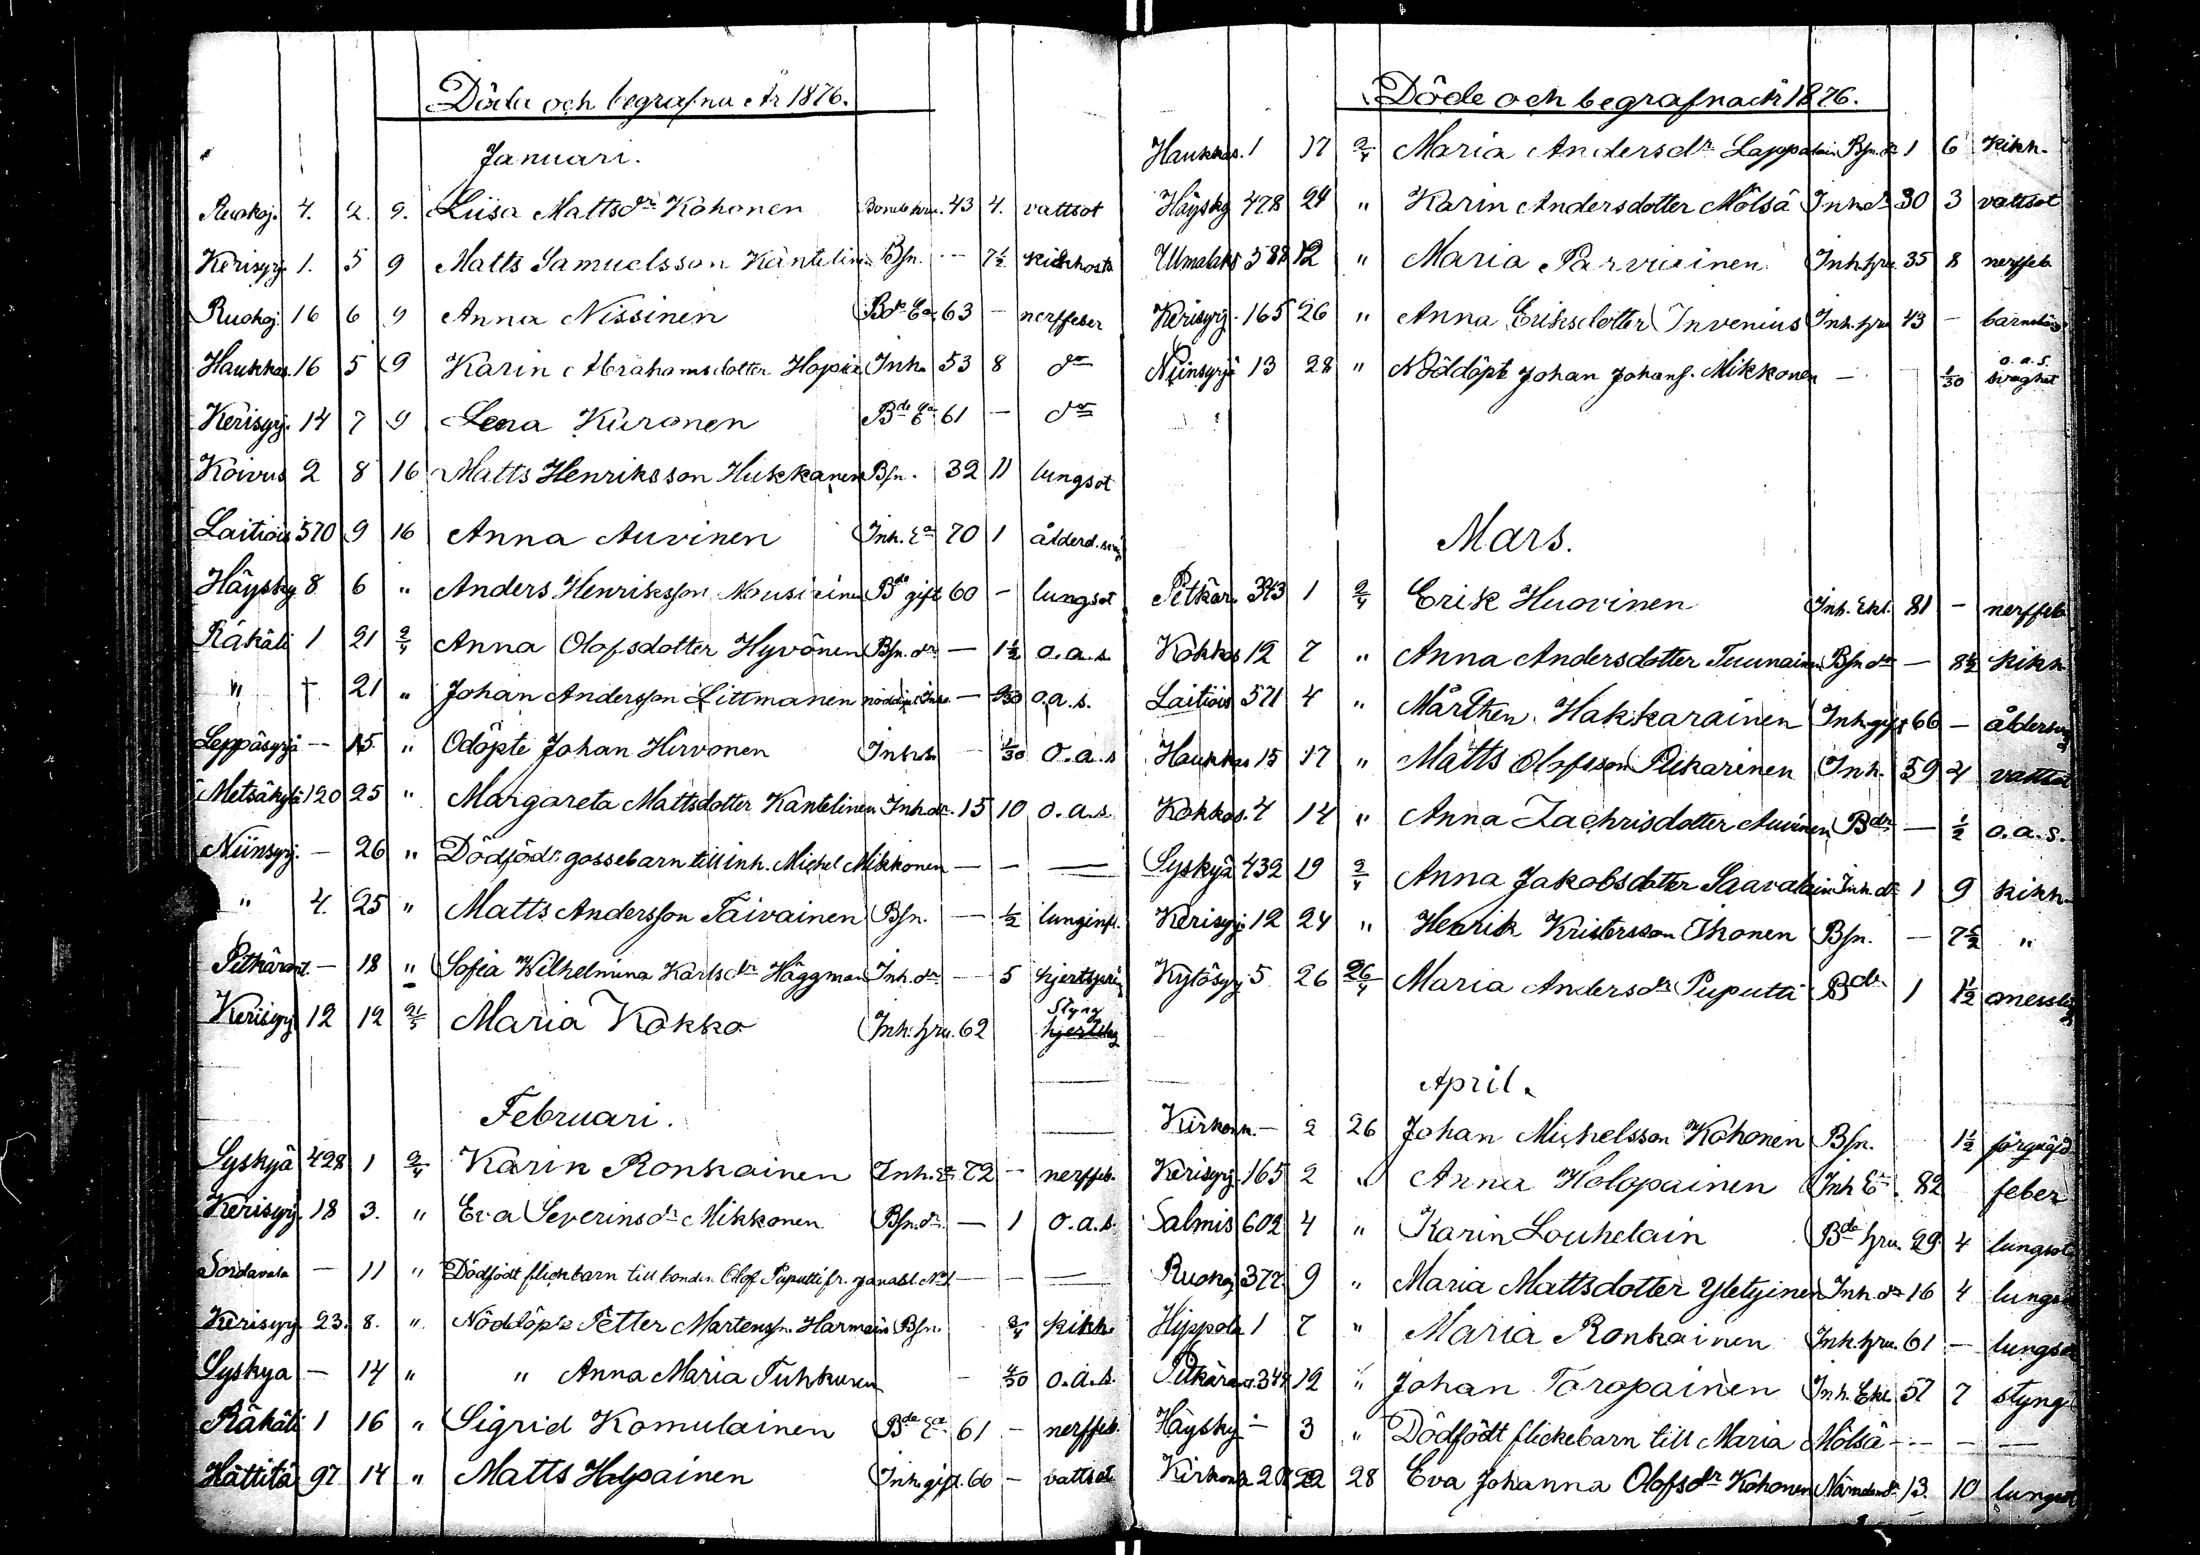 Döda och begrafna År 1876.
Januari.
Ruokoj. 4. 2. 9. Liisa Mattsdr Kohonen Bonde hru. 43 4. vattsot
Kerisyrj. 1. 5 9 Matts Samuelsson Kantelin Bsn. -- 7½ kikhosta
Ruokoj 16 6 9 Anna Nissinen Bde Ea 63 - nerffeber
Haukkas. 16 5 9 Karin Abrahamsdotter Hopia Inh. 53 8 do
Kerisyrj. 14 7 9 Lena Kuronen Bde Ea 61 - do
Koivus 2 8 16 Matts Henriksson Hukkanen Bsn. 32 11 lungsot
Laitiois 570 9 16 Anna Auvinen Inh. Ea 70 1 ålderd.
Häysky 8 6 " Anders Henriksson Nousiainen Bde gift 60 - lungsot
Räkäli 1 21 2/4 Anna Olofsdotter Hyvönen Bsn. dr - 1½ o.a.s.
" † 21 " Johan Andersson Littmanen nöddöpt - o.a.s.
Leppäsyrjä -- 15 " Odöpte Johan Hirvonen - 1/30 o.a.s
Metsäkylä 120 25 " Margareta Mattsdotter Kantelinen Inh. dr. 15 10 o.a.s.
Niinsyrj. - 26 " Dödfödt gossebarn till inh. Michel Mikkonen - - -
" 4. 25 " Matts Andersson Taivainen Bsn. - ½ lunginfl.
Pitkärant. - 18 " Sofia Wilhelmina Karlsdr Häggman Inh. dr - 5
Kerisyrj 12 12 Maria Kokko Inh. hru. 62 Styng
Februari.
Syskyä 428 1 2/4 Karin Ronkainen Inh. Ea 72 - nerffeb.
Kerisyrj. 18 3. " Eva Severinsdr Mikkonen Bsn. dr. - 1 o.a.s.
Sordavala - 11 " Dödfödt flickbarn till bonden Olof Puputti - - -
Kerisyrj. 23. 8. " Nöddöpte Petter Martenssn. Bsn. kikh.
Syskya - 14 " " Anna Maria Tuhkunen - 4/30 o.a.s.
Räkäli 1 16 " Sigrid Komulainen Bde Ea 61 - nerffeb.
Hättitä 97 14 " Matts Halpainen Inh. gift. 66 - vattsot
Döde och begrafna år 1876.
Haukkas. 1 17 2/4 Maria Andersdr Lappalain Bsn. dr 1 6 kikh.
Häysky 478 24 " Karin Andersdotter Mölsä Inh. dr 30 3 vattsot
Ulmalaks 588 12 " Maria Parviainen Inh. hru. 35 8 nerffeb
Kerisyrj. 165 26 " Anna Eriksdotter Invenius Inh. hru 43 -
Niinsyrjä 13 28 " Nöddöpt Johan Johans. Mikkonen - 1/30 o.a.s. svaghet
Mars.
Pitkär. 343 1 2/4 Erik Huovinen Inh. Ekl. 81 - nerffeb
Kokkos 12 7 " Anna Andersdotter Tuunainen Bsn dr - 8½ kikh
Laitiois 571 4 " Mårthen Hakkarainen Inh. gift 66 -
Haukkas 15 17 " Matts Olofsson Pukarinen Inh. 59 4 vattsot
Kokkos. 4 14 " Anna Zachrisdotter Auvinen Bdr - ½ o.a.s.
Syskyä 432 19 2/4 Anna Jakobsdotter Saavalain Inh. dr 1 9 kikh.
Kerisyrj. 12 24 " Henrik Kristersson Ihonen Bsn. - "
Kytösyrj 5 26 26/4 Maria Andersdr Puputti Bdr 1 1½
April.
Kirkonk. - 2 26 Johan Michelsson Kohonen Bsn. 1½
Kerisyrj. 165 2 " Anna Holopainen Inh Ea. 82 feber
Salmis 602 4 " Karin Louhelain Bde hru. 29 4 lungsot
Ruokoj 372 9 " Maria Mattsdotter Yletyinen Inh. dr 16 4 lungsot
Hippola 1 7 " Maria Ronkainen Inh. hru. 61 - lungsot
Pitkärant. 12 " Johan Toropainen Inh. Ekl 57 7 styng
Häysky - 3 " Dödfödt flickebarn till Maria Mölsä - - -
Kirkonk 22 28 Eva Johanna Olofsdr Kohonen 13. 10 lungsot